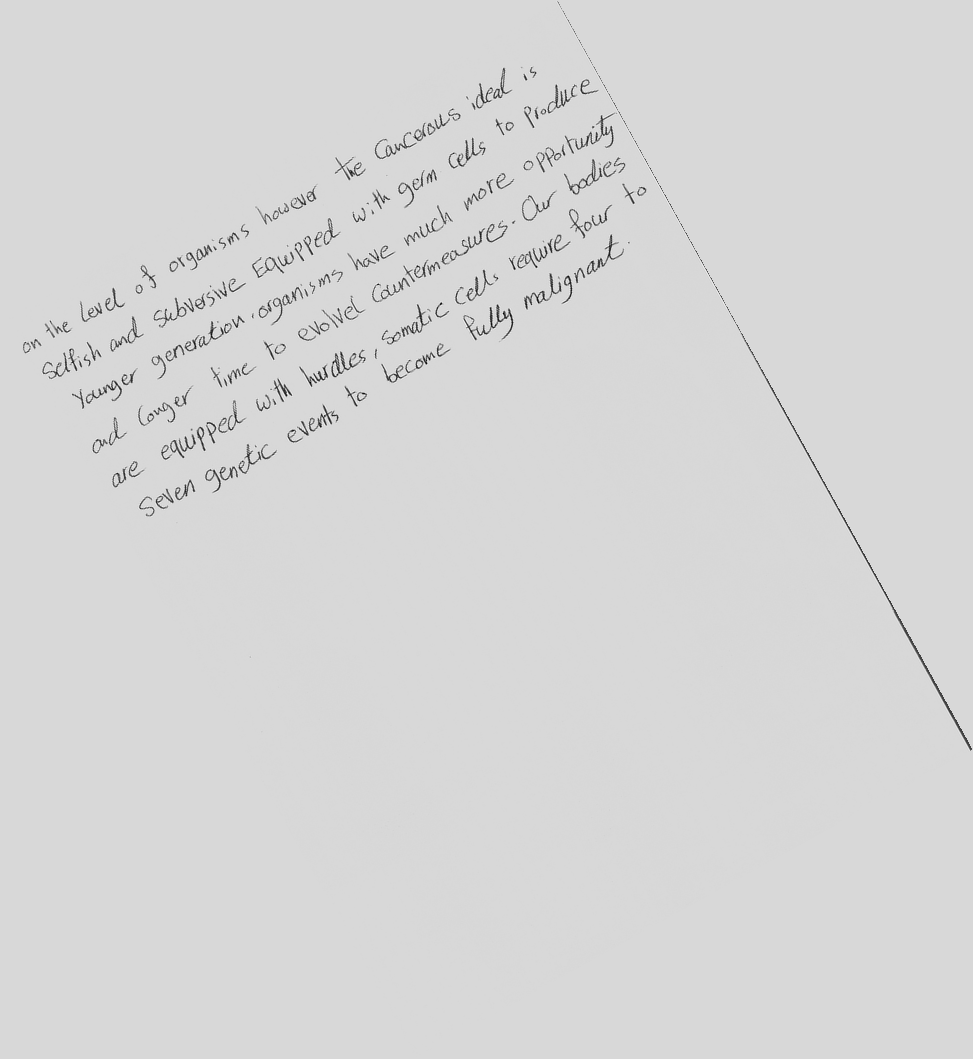 on the Level of organisms however the Cancerous ideal is
Selfish and Subversive Equipped with germ Cells to Produce
Younger generation. organisms have much more opportunity
and Longer time to evolvel Countermeasures. Our bodies
are equipped with hurdles, somatic Cells require four to
Seven genetic events to become fully malignant.